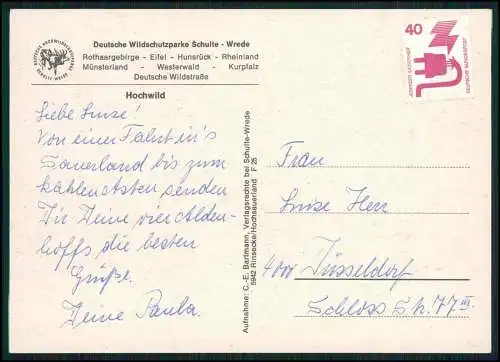 Deutsche Wildschutzparke Schulte - Wrede
Rothaargebirge - Eifel - Hunsrück - Rheinland
Münsterland - Westerwald - Kurpfalz
Deutsche Wildstraße
Hochwild
Liebe Luise!
Von einer Fahrt in's
Sauerland bis zum
kahlen Asten senden
Dir Deine vier Alden-
hoffs die besten
Grüße.
Deine Paula.
Aufnahme: C.-E. Bartmann, Verlagsrechte bei Schulte-Wrede
5942 Rinsecke/Hochsauerland F 25
40
DEUTSCHE BUNDESPOST
Frau
Luise Herr
4000 Düsseldorf
Schloss Str. 77 III.